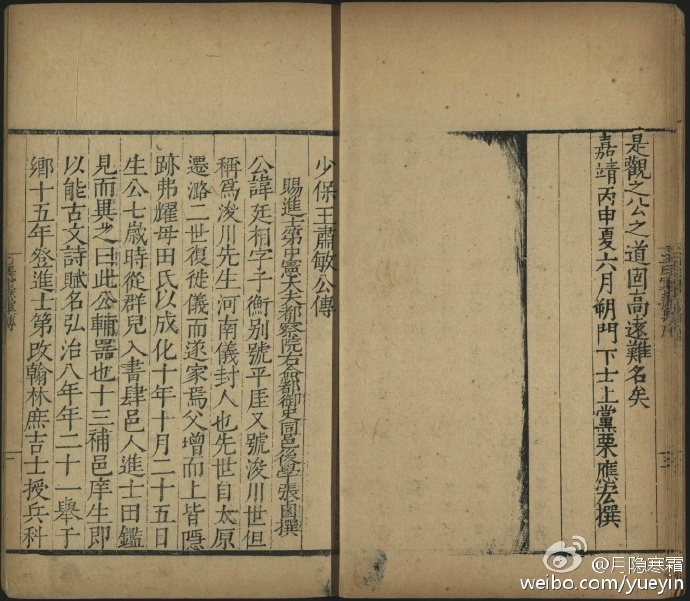 是觀之公之道固高遠難名矣
嘉靖丙申夏六月朔門下士上黨栗應宏撰
少保王肅敏公傳
賜進士第中憲大夫都察院右僉都御史同邑後學張鹵撰
公諱廷相字子衡别號平厓又號浚川世但
稱為浚川先生河南儀封人也先世自太原
遷潞二世復徙儀而遂家焉父增而上皆隱
跡弗耀母田氏以成化十年十月二十五日
生公七歲時從群兒入書肆邑人進士田鑑
見而異之曰此公輔器也十三補邑庠生即
以能古文詩賦名弘治八年年二十一舉于
鄉十五年登進士第改翰林庶吉士授兵科
@月隐寒霜
weibo.com/yueyin